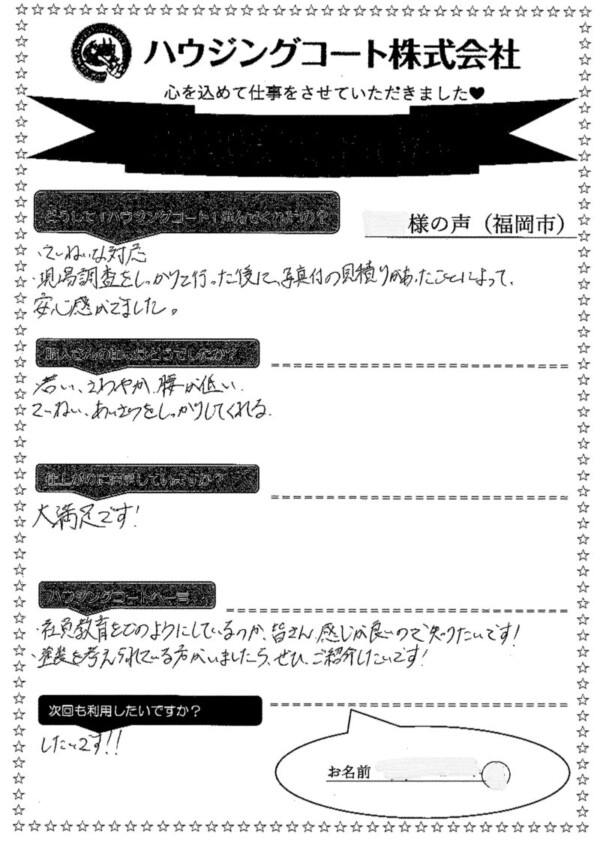 ハウジングコート株式会社
心を込めて仕事をさせていただきました♥
どうして「ハウジングコート」選んでくれたの？
様の声（福岡市）
・ていねいな対応
・現場調査をしっかりと行った後に、写真付の見積りがあったことによって、
安心感がでました。
職人さんの印象はどうでしたか？
若い、さわやか、腰が低い
ていねい、あいさつをしっかりしてくれる。
仕上がりに満足していますか？
大満足です！
ハウジングコートへ一言
・社員教育をどのようにしているのか、皆さん感じが良いので知りたいです！
・塗装を考えられている方がいましたら、ぜひ、ご紹介したいです！
次回も利用したいですか？
したいです！！
お名前